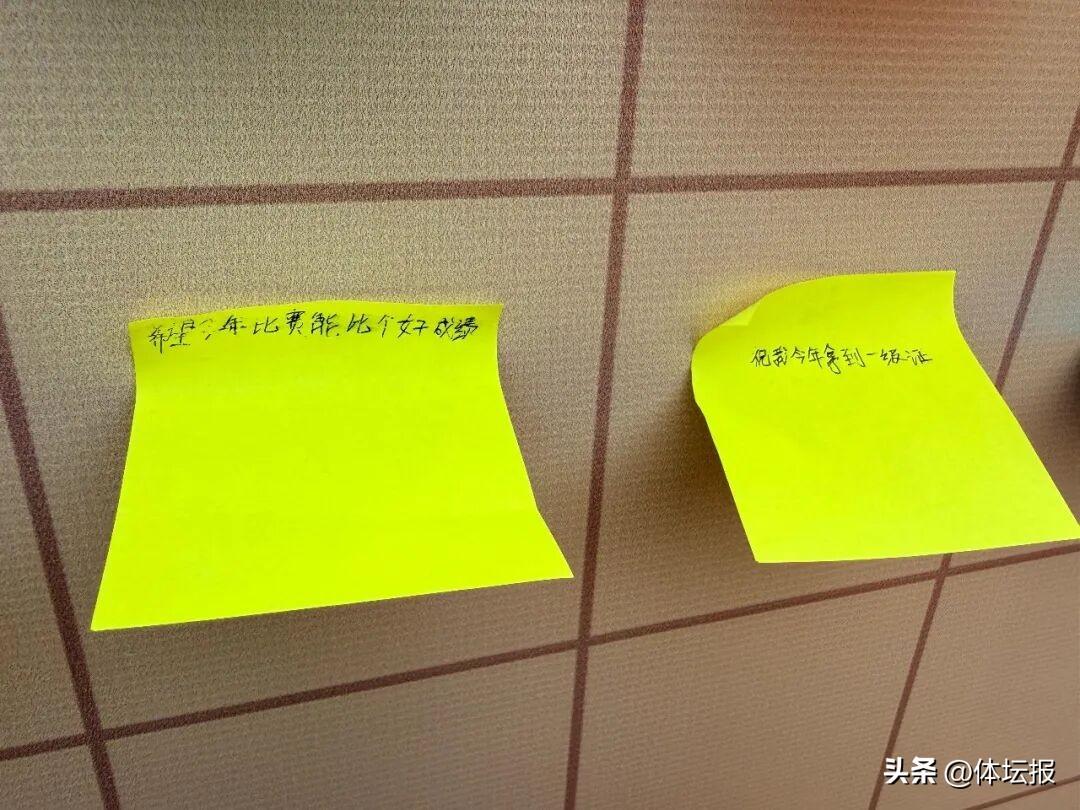 希望今年比赛能比个好成绩
祝我今年拿到一级证
头条 @体坛报